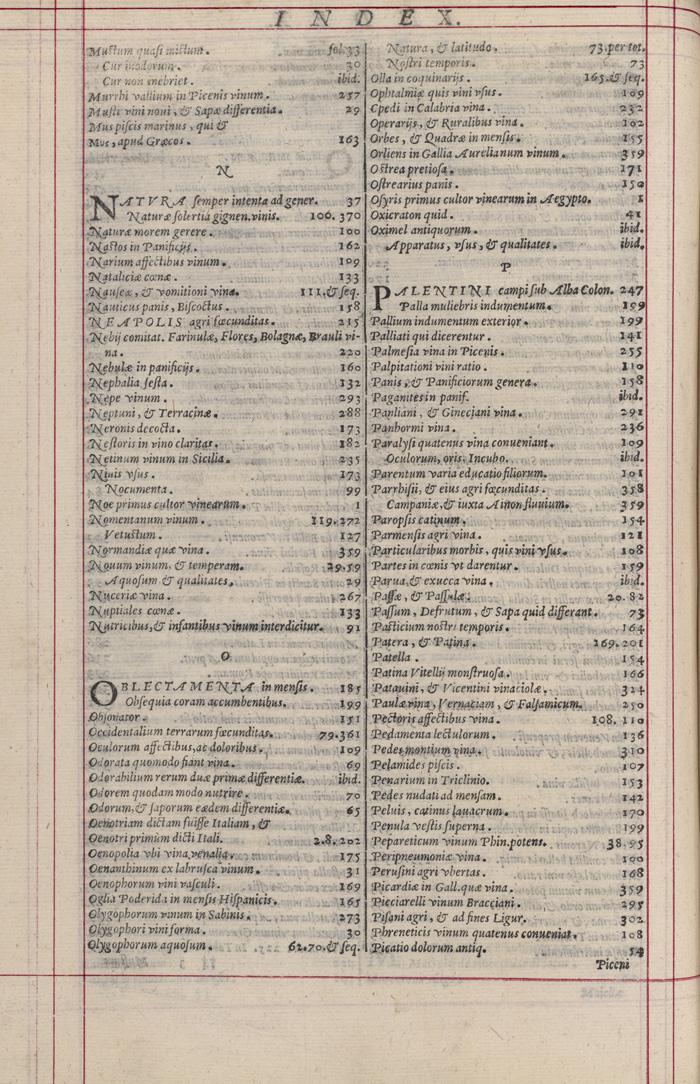 INDEX.
Muſtum quaſi mictum. fol. 33
Cur inodorum. 30
Cur non enebriet. ibid.
Murrhi vallium in Picenis vinum. 257
Muſti vini noui, & Sapæ differentia. 29
Mus piſcis marinus, qui &
Mus, apud Græcos. 163
N
NATVRA ſemper intenta ad gener. 37
Naturæ ſolertia gignen. vinis. 106. 370
Naturæ morem gerere. 100
Naſtos in Panificijs. 162
Narium affectibus vinum. 109
Nataliciæ cœnæ. 133
Nauſeæ, & vomitioni vina. 111. & ſeq.
Nauticus panis, Biſcoctus. 158
NEAPOLIS agri fœcunditas. 215
Nebij comitat. Farinulæ, Flores, Bolagnæ, Brauli vi-
na. 220
Nebulæ in panificijs. 160
Nephalia feſta. 132
Nepe vinum. 293
Neptuni, & Terracinæ. 288
Neronis decocta. 173
Neſtoris in vino claritas. 182
Netinum vinum in Sicilia. 235
Niuis vſus. 173
Nocumenta. 99
Noe primus cultor vinearum. 1
Nomentanum vinum. 119. 272
Vetuſtum. 127
Normandiæ quæ vina. 359
Nouum vinum, & temperam. 29. 59
Aquoſum & qualitates. 29
Nuceriæ vina. 267
Nuptiales cœnæ. 133
Nutricibus, & infantibus vinum interdicitur. 91
O
OBLECTAMENTA in menſis. 185
Obſequia coram accumbentibus. 199
Obſonator. 151
Occidentalium terrarum fœcunditas. 79. 361
Oculorum affectibus, ac doloribus. 109
Odorata quomodo fiant vina. 69
Odorabilium rerum duæ primæ differentiæ. ibid.
Odorem quodam modo nutrire. 70
Odorum, & ſaporum eædem differentiæ. 65
Oenotriam dictam fuiſſe Italiam, &
Oenotri primùm dicti Itali. 2. 8. 202
Oenopolia vbi vina venalia. 175
Oenanthinum ex labruſca vinum. 31
Oenophorum vini vaſculi. 169
Oglia Poderida in menſis Hiſpanicis. 165
Olygophorum vinum in Sabinis. 273
Olygophori vini forma. 30
Olygophorum aquoſum. 62. 70. & ſeq.
Natura, & latitudo. 73. per tot.
Noſtri temporis. 73
Olla in coquinarijs. 165. & ſeq.
Ophtalmiæ quis vini vſus. 109
Opedi in Calabria vina. 232
Operarijs, & Ruralibus vina. 102
Orbes, & Quadræ in menſis. 155
Orliens in Gallia Aurelianum vinum. 359
Oſtrea pretioſa. 171
Oſtrearius panis. 150
Oſyris primus cultor vinearum in Aegypto. 1
Oxicraton quid. 41
Oximel antiquorum. ibid.
Apparatus, vſus, & qualitates. ibid.
P
PALENTINI campi ſub Alba Colon. 247
Palla muliebris indumentum. 199
Pallium indumentum exterior. 199
Palliati qui dicerentur. 141
Palmeſia vina in Picenis. 255
Palpitationi vini ratio. 110
Panis, & Panificiorum genera. 158
Paganites in panif. ibid.
Panliani, & Gineciani vina. 291
Panhormi vina. 236
Paralyſi quatenus vina conueniant. 109
Oculorum, oris, Incubo. ibid.
Parentum varia educatio filiorum. 101
Parrhiſij, & eius agri fœcunditas. 358
Campaniæ, & iuxta Ainon fluuium. 359
Paropſis catinum. 154
Parmenſis agri vina. 121
Particularibus morbis, quis vini vſus. 108
Partes in cœnis vt darentur. 159
Parua, & exucca vina. ibid.
Paſſæ, & Paſſulæ. 20. 82
Paſſum, Defrutum, & Sapa quid differant. 73
Paſticium noſtri temporis. 164
Patera, & Patina. 169. 201
Patella. 154
Patina Vitellij monſtruoſa. 166
Patauini, & Vicentini vina ciolæ. 324
Paulæ vina, Vernaciam, & Falſamicum. 250
Pectoris affectibus vina. 108. 110
Pedamenta lectulorum. 136
Pedemontium vina. 310
Pelamides piſcis. 107
Penarium in Triclinio. 153
Pedes nudati ad menſam. 142
Peluis, catinus lauacrum. 170
Penula veſtis ſuperna. 199
Pepareticum vinum Phin. potens. 38. 95
Peripneumoniæ vina. 100
Peruſini agri vbertas. 168
Picardiæ in Gall. quæ vina. 359
Pieciarelli vinum Bracciani. 295
Piſani agri, & ad fines Ligur. 302
Phreneticis vinum quatenus conueniat. 108
Picatio dolorum antiq. 54
Piceni